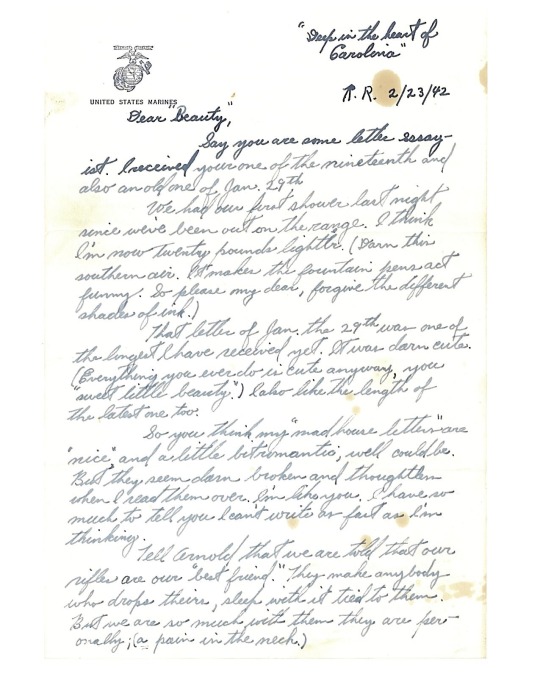 "Deep in the heart of
Carolina"
R.R. 2/23/42
UNITED STATES MARINES
Dear "Beauty,"
Say you are some letter essay-
ist. I received your one of the nineteenth and
also an old one of Jan. 29th
We had our first shower last night
since we've been out on the range. I think
I'm now twenty pounds lighter. (Darn this
southern air. It makes the fountain pens act
funny. So please my dear, forgive the different
shades of ink.)
That letter of Jan. the 29th was one of
the longest I have received yet. It was darn cute.
(Everything you ever do is cute anyway, you
"sweet little beauty".) I also like the length of
the latest one too.
So you think my "mad house letters" are
"nice", and a little bit romantic, well could be.
But they seem darn broken and thoughtless
when I read them over. I'm like you. I have so
much to tell you I can't write as fast as I'm
thinking.
Tell Arnold that we are told that our
rifles are our "best friend." They make anybody
who drops theirs, sleep with it tied to them.
But we are so much with them they are per-
onally; (a pain in the neck.)